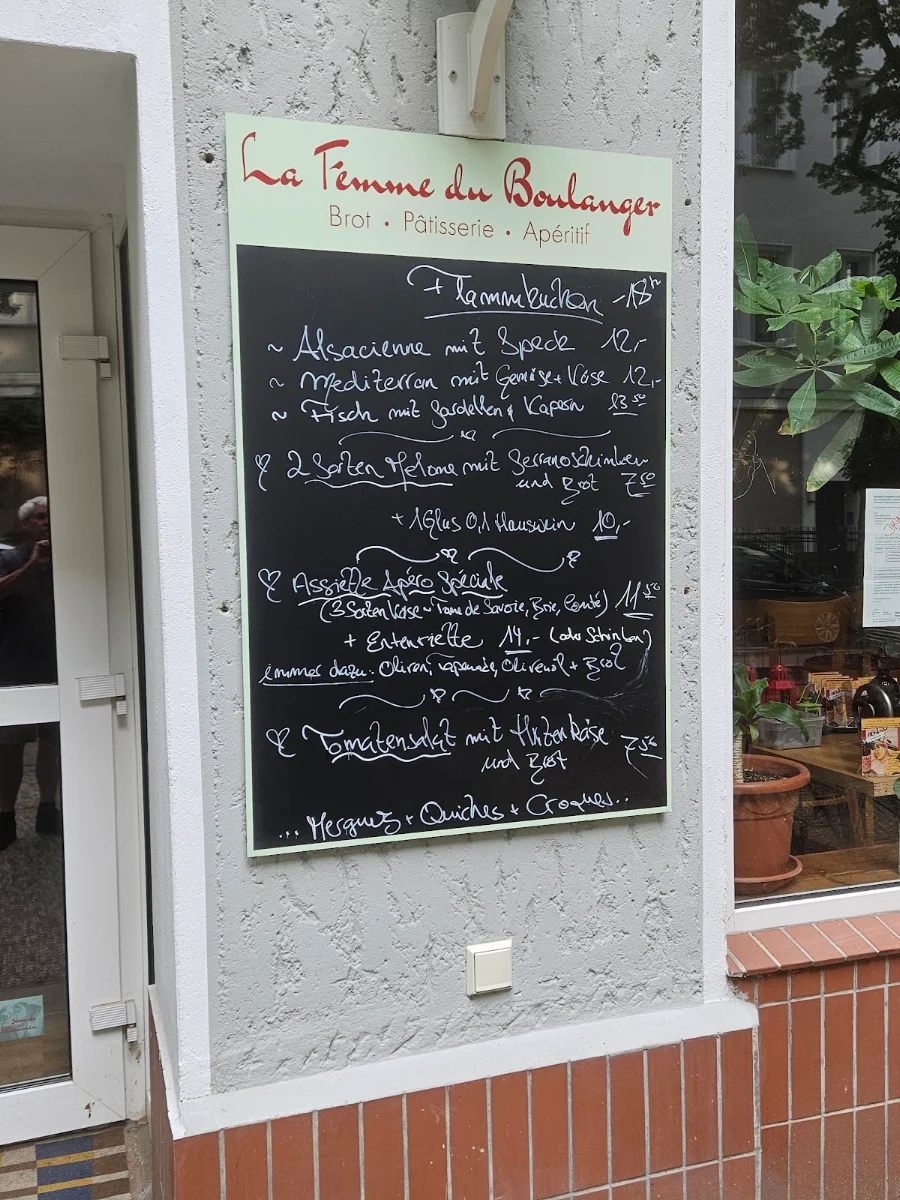 La Femme du Boulanger
Brot • Pâtisserie • Apéritif
+ Flammkuchen -18h
~ Alsacienne mit Speck 12,-
~ Mediterran mit Gemüse + Käse 12,-
~ Fisch mit Sardellen & Kapern 13 50
2 Sorten Melone mit Serranoschinken
und Brot 7 50
+ 1 Glas 0,1 Hauswein 10,-
Assiette Apéro Spéciale
(3 Sorten Käse ~ Tome de Savoie, Brie, Comté) 11 50
+ Entenriette 14,- (oder Schinken)
immer dazu: Oliven, Tapenade, Olivenöl + Brot
Tomatensalat mit Hirtenkäse
und Brot 7 50
... Merguez + Quiches + Croques..